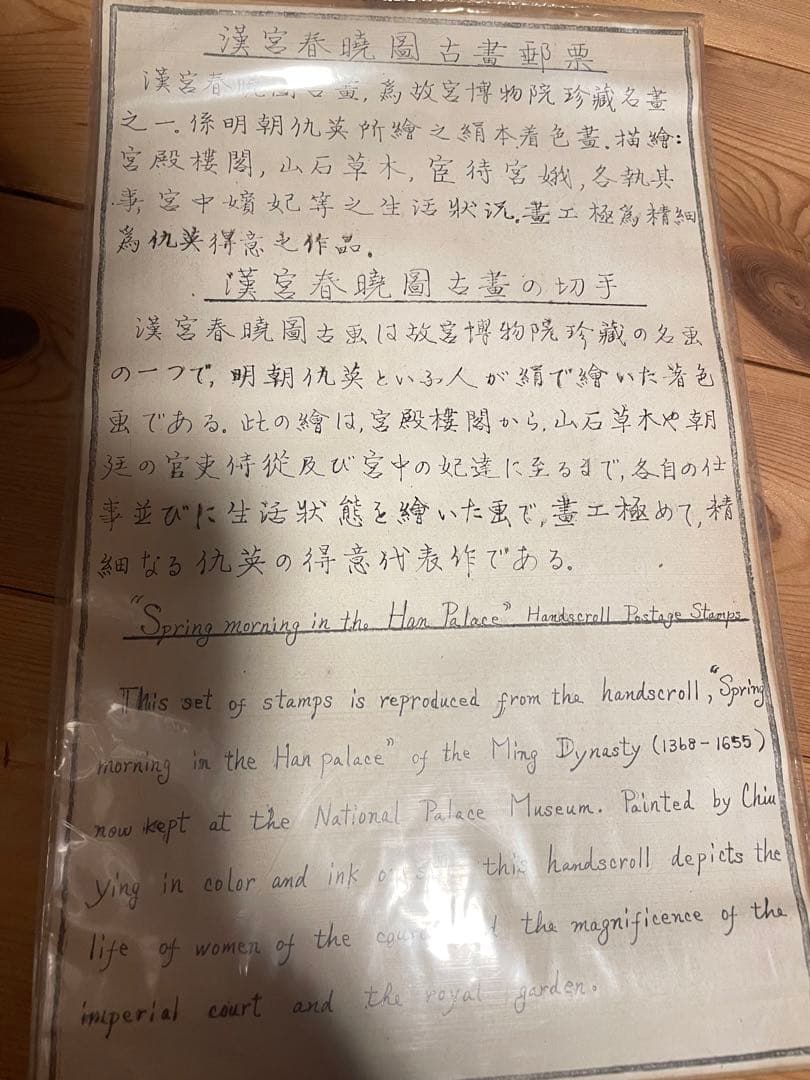 漢宮春曉圖古畫郵票
漢宮春曉圖古畫,為故宮博物院珍藏名畫
之一.係明朝仇英所繪之絹本着色畫.描繪:
宮殿樓閣,山石草木,宦待宮娥,各執其
事,宮中嬪妃等之生活狀況.畫工極為精細
為仇英得意之作品.
漢宮春曉圖古畫の切手
漢宮春曉圖古画は故宮博物院珍藏の名画
の一つで,明朝仇英といふ人が絹で繪いた着色
画である.此の繪は,宮殿樓閣から,山石草木や朝
廷の官吏侍從及び宮中の妃達に至るまで,各自の仕
事並びに生活狀態を繪いた画で,畫工極めて,精
細なる仇英の得意代表作である.
"Spring morning in the Han Palace" Handscroll Postage Stamps
This set of stamps is reproduced from the handscroll, "Spring
morning in the Han palace" of the Ming Dynasty (1368-1655)
now kept at the National Palace Museum. Painted by Chiu
ying in color and ink this handscroll depicts the
life of women of the the magnificence of the
imperial court and the royal garden.